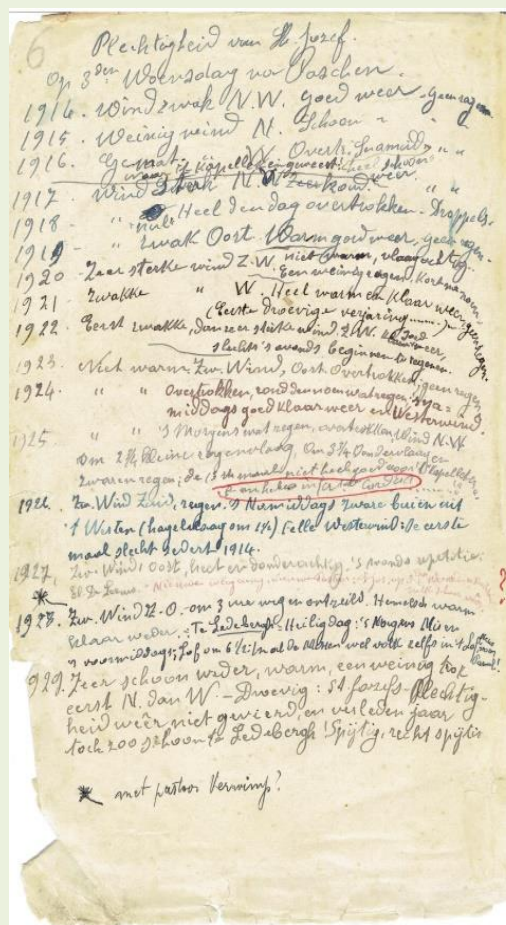 6
Plechtigheid van St. Jozef.
Op 3den Woensdag na Paschen.
1914. Wind zwak N.W. goed weer - geen regen
1915. Weinig wind N. Schoon " "
1916. Gemat. " W. Overtr. " "
naar 't Kapelleken geweest: heel schoon weer.
1917. Wind Sterk N.W. Zeer koud. " "
1918. " nul: Heel den dag overtrokken - Droppels.
1919. " zwak Oost. Warm goed weer, geen regen.
1920. Zeer sterke wind Z.W. niet warm, vlaagachtig.
Een weinig regen, kort na noen.
1921. Zwakke " W. Heel warm en klaar weer, geen regen.
(Eerste droevige verjaring......)
1922. Eerst zwakke, dan zeer sterke wind Z.W. goed weer,
slechts 's avonds beginnen te regenen.
1923. Niet warm. Zw. Wind, Oost. Overtrokken; geen regen
1924. " " Overtrokken, rond den noen wat regen; na-
middags goed klaar weer en Westerwind.
1925. " " 's Morgens wat regen, overtrokken, Wind N.W.
Om 2 1/4 kleine regenvlaag, Om 3 1/4 Dondervlaag en
zwaren regen; de 1ste maal niet heel goed voor 't Kapelleken
1926. Zw. Wind Zuid, regen. 's Namiddags zware buien uit
't Westen (hagelvlaag om 1 1/2) Felle Westerwind: de eerste
maal slecht sedert 1914.
1927. Zw. Wind Oost, heet en donderachtig. 's avonds repetitie:
*
1928. Zw. Wind Z.O. om 3 ure wegen ontzeild. Hemelsch warm
klaar weder. Te Ledebergh: Heiligdag: 's Morgens Missen
's voormiddags; Lof om 6 1/2; in al de Missen veel volk zelfs in 't Lof
1929. Zeer schoon weder, warm, een weinig trok
eerst N. dan W. - Droevig: St Jozefs-Plechtig-
heid wêer niet gevierd, en verleden jaar
toch zoo schoon te Ledebergh! Spijtig, recht spijtig
* met pastoor Verwimp?